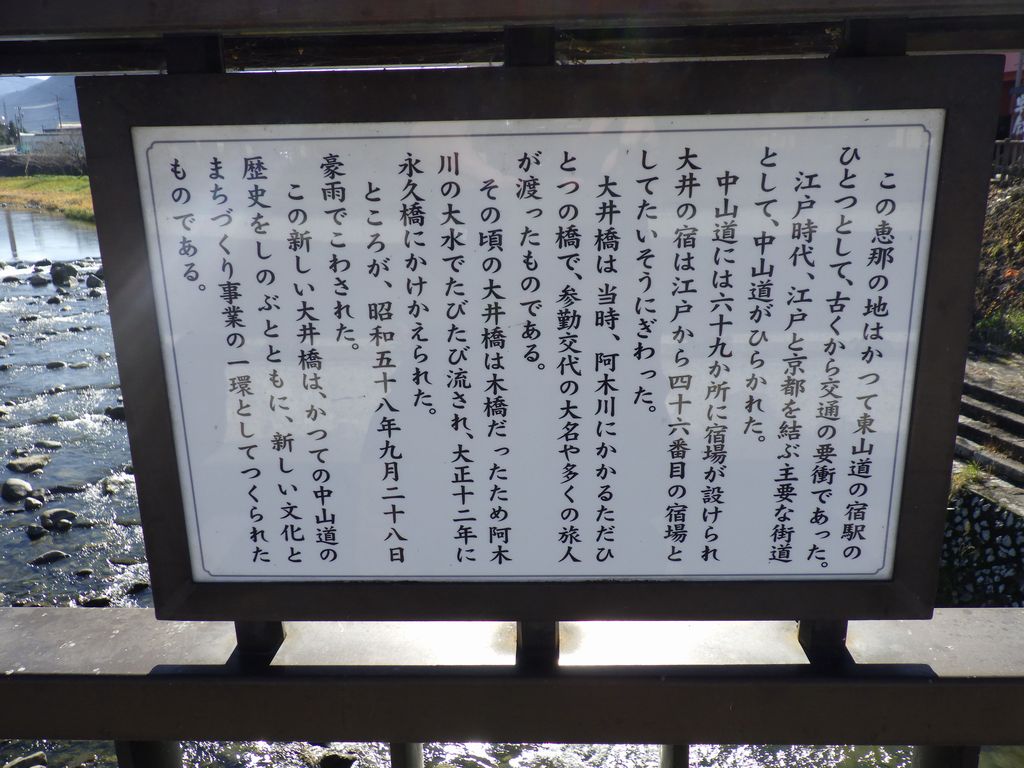 この恵那の地はかつて東山道の宿駅の
ひとつとして、古くから交通の要衝であった。
江戸時代、江戸と京都を結ぶ主要な街道
として、中山道がひらかれた。
中山道には六十九か所に宿場が設けられ
大井の宿は江戸から四十六番目の宿場と
してたいそうにぎわった。
大井橋は当時、阿木川にかかるただひ
とつの橋で、参勤交代の大名や多くの旅人
が渡ったものである。
その頃の大井橋は木橋だったため阿木
川の大水でたびたび流され、大正十二年に
永久橋にかけかえられた。
ところが、昭和五十八年九月二十八日
豪雨でこわされた。
この新しい大井橋は、かつての中山道の
歴史をしのぶとともに、新しい文化と
まちづくり事業の一環としてつくられた
ものである。